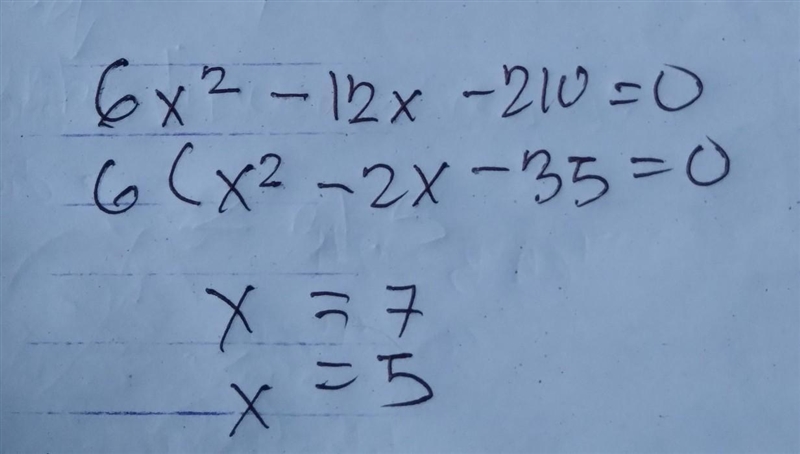 6x² - 12x - 210 = 0
6(x² - 2x - 35 = 0
x = 7
x = 5